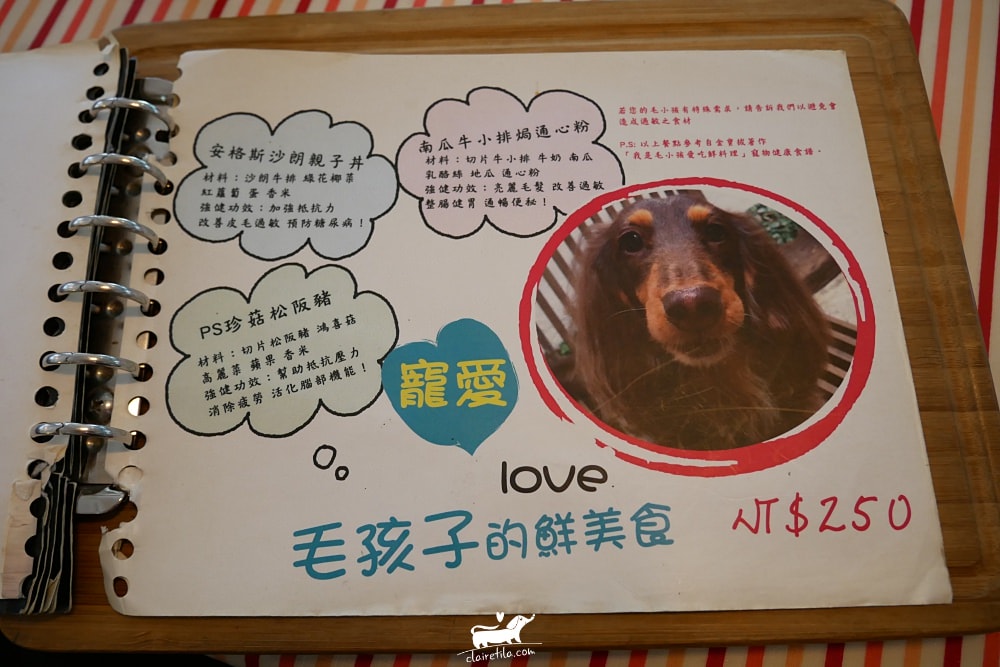 安格斯沙朗親子丼
材料：沙朗牛排 綠花椰菜
紅蘿蔔 蛋 香米
強健功效：加強抵抗力
改善皮毛過敏 預防糖尿病！
南瓜牛小排焗通心粉
材料：切片牛小排 牛奶 南瓜
乳酪絲 地瓜 通心粉
強健功效：亮麗毛髮 改善過敏
整腸健胃 通暢便秘！
若您的毛小孩有特殊需求，請告訴我們以避免會
造成過敏之食材
P.S: 以上餐點參考自金寶援著作
「我是毛小孩愛吃鮮料理」寵物健康食譜．
PS珍菇松阪豬
材料：切片松阪豬 鴻喜菇
高麗菜 蘋果 香米
強健功效：幫助抵抗壓力
消除疲勞 活化腦部機能！
寵愛
love
毛孩子的鮮美食
NT$250
clairetila.com